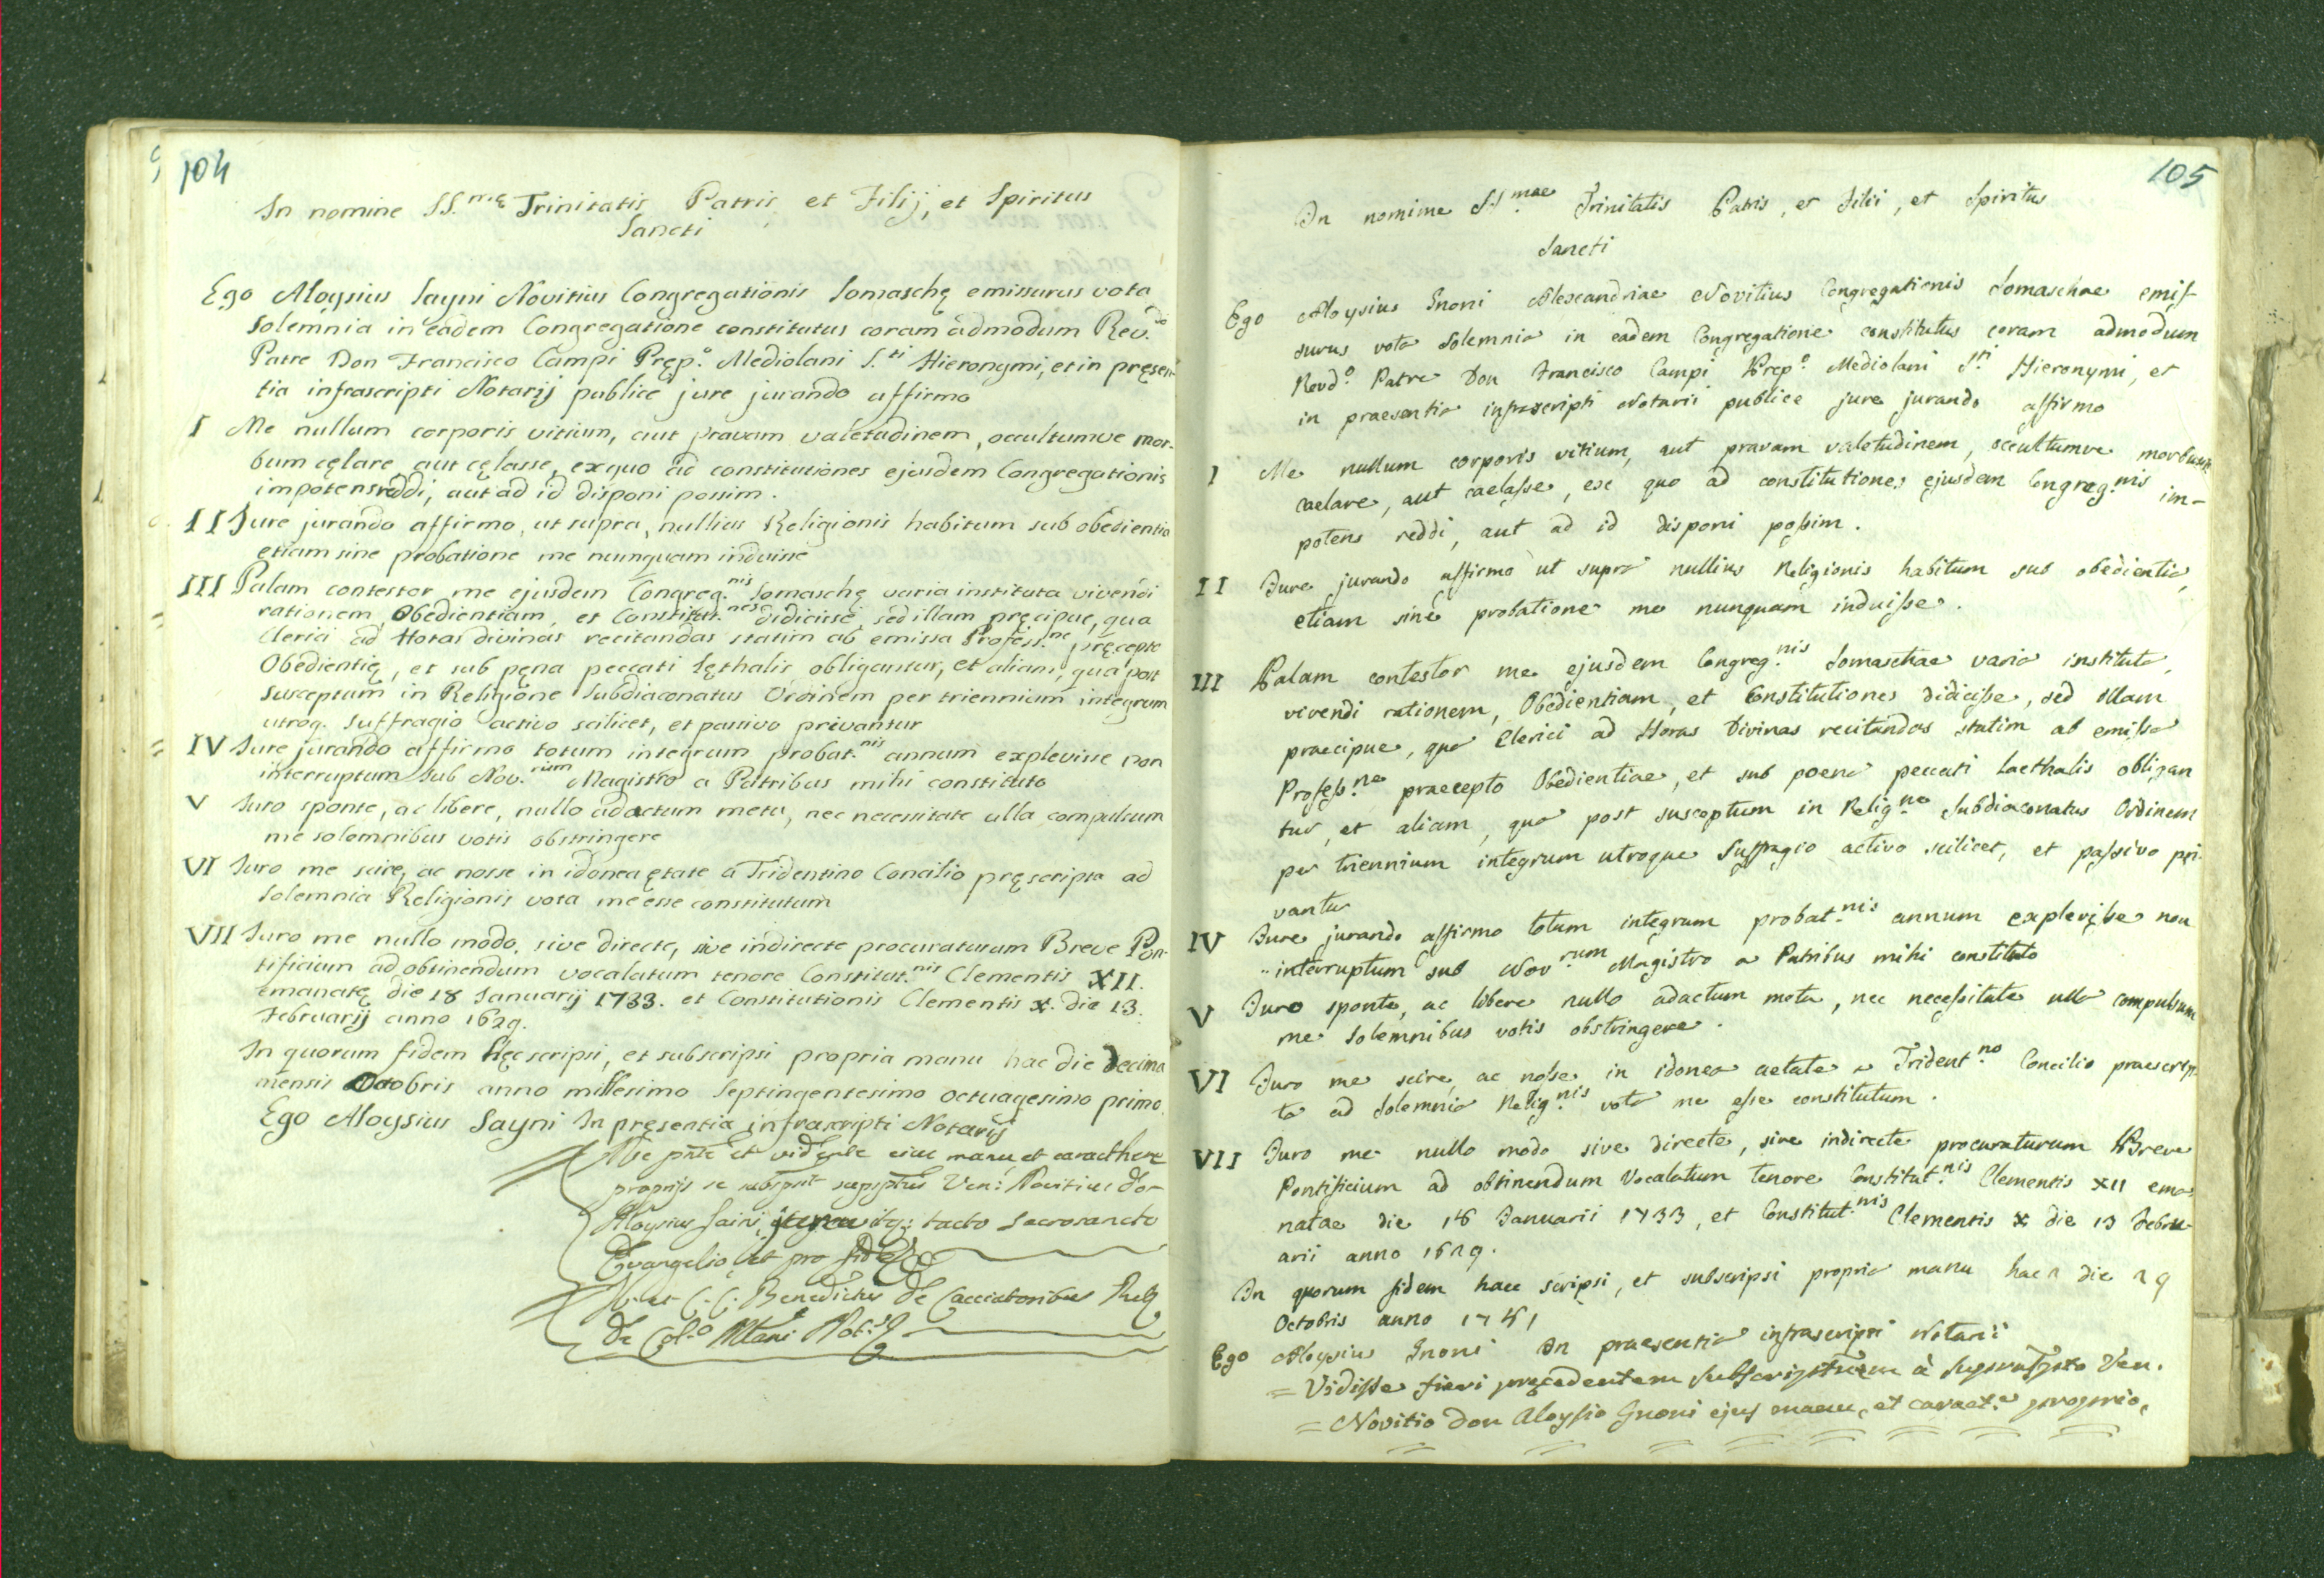 104
In nomine SS.mę Trinitatis Patris et Filij, et Spiritus
Sancti
Ego Aloysius Sayni Novitius Congregationis Somaschę emissurus vota
solemnia in eadem Congregatione constitutus coram admodum Rev.do
Patre Don Francisco Campi Pręp.o Mediolani S.ti Hieronymi, et in pręsen-
tia infrascripti Notarij publice jure jurando affirmo
I Me nullum corporis vitium, aut pravam valetudinem, occultumve mor-
bum cęlare, aut cęlasse, ex quo ad constitutiones ejusdem Congregationis
impotens reddi, aut ad id disponi possim.
II Jure jurando affirmo, ut supra, nullius Religionis habitum sub obedientia
etiam sine probatione me nunquam induisse
III Palam contestor me ejusdem Congreg.nis Somaschę varia instituta vivendi
rationem, Obedientiam, et Constitut.nes didicisse, sed illam pręcipue, qua
Clerici ad Horas divinas recitandas statim ab emissa Profess.ne pręcepto
Obedientię, et sub pęna peccati lęthalis obligantur, et aliam, qua post
susceptum in Religione Subdiaconatus Ordinem per triennium integrum
utroq. suffragio activo scilicet, et passivo privantur
IV Jure jurando affirmo totum integrum probat.nis annum explevisse non
interruptum sub Nov.rium Magistro a Patribus mihi constituto
V Juro sponte, ac libere, nullo adactum metu, nec necessitate ulla compulsum
me solemnibus votis obstringere
VI Juro me scire, ac nosse in idonea ętate a Tridentino Concilio pręscripta ad
solemnia Religionis vota me esse constitutum
VII Juro me nullo modo, sive directe, sive indirecte procuraturum Breve Pon-
tificium ad obtinendum vocalatum tenore Constitut.nis Clementis XII.
emanatę die 18 Januarij 1733. et Constitutionis Clementis X. die 13.
Februarij anno 1629.
In quorum fidem hęc scripsi, et subscripsi propria manu hac die decima
mensis Octobris anno millesimo septingentesimo octuagesimo primo.
Ego Aloysius Sayni In pręsentia infrascripti Notarij
Me pńte et vidente eius manu et caracthere
proprijs se Ven: Novitius
Aloysius Saini, tacto sacrosancto
Evangelio, et pro fide
Benedictus De Cacciatoribus
De Col.o
105
In nomine SSmae Trinitatis Patris, et Filii, et Spiritus
Sancti
Ego Aloysius Gnoni Alexandriae Novitius Congregationis Somaschae emis-
surus vota solemnia in eadem Congregatione constitutus coram admodum
Revd.o Patre Don Francisco Campi Prep.o Mediolani S.ti Hieronymi, et
in praesentia infrascripti Notarii publice jure jurando affirmo
I Me nullum corporis vitium, aut pravam valetudinem, occultumve morbum
caelare, aut caelasse, ex quo ad constitutiones ejusdem Congreg.nis im-
potens reddi, aut ad id disponi possim.
II Jure jurando affirmo ut supra nullius Religionis habitum sub obedientia,
etiam sine probatione me nunquam induisse.
III Palam contestor me ejusdem Congreg.nis Somaschae varia instituta,
vivendi rationem, Obedientiam, et Constitutiones didicisse, sed illam
praecipue, qua Clerici ad Horas Divinas recitandas statim ab emissa
Profess.ne praecepto Obedientiae, et sub poena peccati laethalis obligan
tur, et aliam, qua post susceptum in Relig.ne Subdiaconatus Ordinem
per triennium integrum utroque suffragio activo scilicet, et passivo pri-
vantur
IV Jure jurando affirmo totum integrum probat.nis annum explevisse non
interruptum sub Nov.rum Magistro a Patribus mihi constituto
V Juro sponte, ac libere nullo adactum metu, nec necessitate ulla compulsum
me solemnibus votis obstringere.
VI Juro me scire, ac nosse in idonea aetate a Trident.no Concilio praescrip-
ta ad solemnia Relig.nis vota me esse constitutum.
VII Juro me nullo modo sive directe, sive indirecte procuraturum Breve
Pontificium ad obtinendum Vocalatum tenore Constitut.nis Clementis XII ema-
natae die 18 Januarii 1733, et Constitut.nis Clementis X die 13 Febru-
arii anno 1629.
In quorum fidem haec scripsi, et subscripsi propria manu hac die 29
Octobris anno 1781
Ego Aloysius Gnoni In praesentia infrascripti Notarii
= Vidisse fieri pręcedentem à Ven.
= Novitio don Aloysio Gnoni ejus manu, et caract.e proprio,